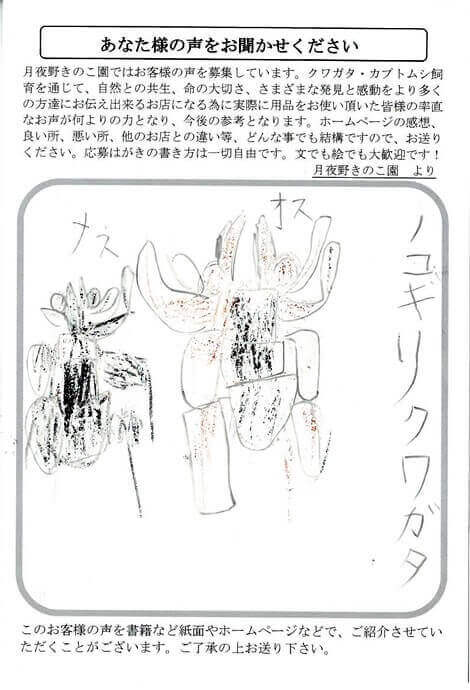 あなた様の声をお聞かせください
月夜野きのこ園ではお客様の声を募集しています。クワガタ・カブトムシ飼
育を通じて、自然との共生、命の大切さ、さまざまな発見と感動をより多く
の方達にお伝え出来るお店になる為に実際に用品をお使い頂いた皆様の率直
なお声が何よりの力となり、今後の参考となります。ホームページの感想、
良い所、悪い所、他のお店との違い等、どんな事でも結構ですので、お送り
ください。応募はがきの書き方は一切自由です。文でも絵でも大歓迎です！
月夜野きのこ園　より
ノコギリクワガタ
オス
メス
このお客様の声を書籍など紙面やホームページなどで、ご紹介させてい
ただくことがございます。ご了承の上お送り下さい。